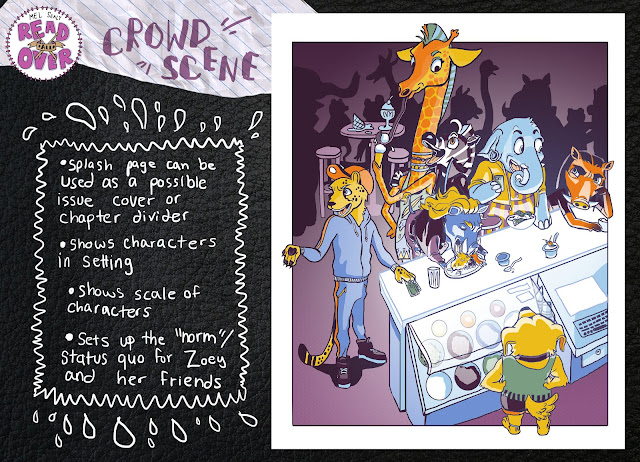 MEL
READ
OVER
CROWD
SCENE
• Splash page can be
used as a possible
issue cover or
chapter divider
• Shows characters
in setting
• Shows scale of
characters
• Sets up the "norm"/
Status quo for Zoey
and her friends